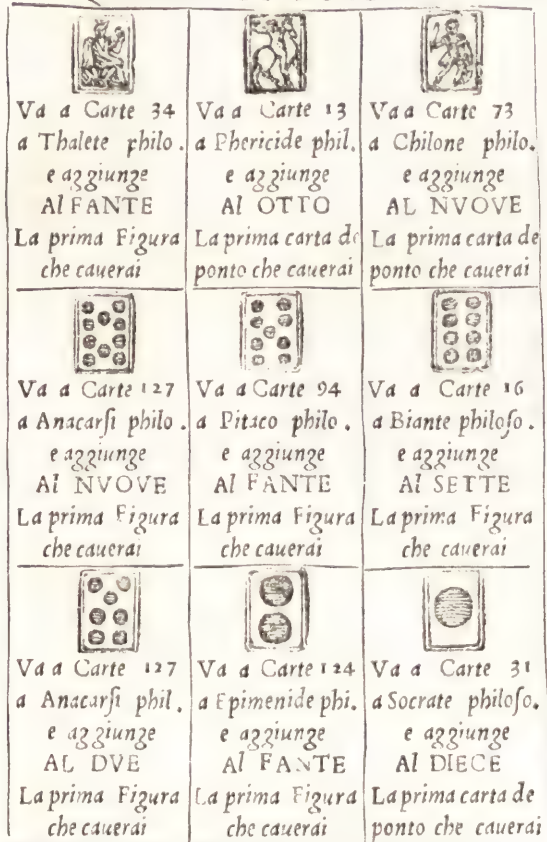 Va a Carte 34
a Thalete philo.
e aggiunge
Al FANTE
La prima Figura
che cauerai
Va a Carte 13
a Phericide phil.
e aggiunge
Al OTTO
La prima carta de
ponto che cauerai
Va a Carte 73
a Chilone philo.
e aggiunge
AL NVOVE
La prima carta de
ponto che cauerai
Va a Carte 127
a Anacarſi philo.
e aggiunge
Al NVOVE
La prima Figura
che cauerai
Va a Carte 94
a Pitaco philo.
e aggiunge
Al FANTE
La prima Figura
che cauerai
Va a Carte 16
a Biante philoſo.
e aggiunge
Al SETTE
La prima Figura
che cauerai
Va a Carte 127
a Anacarſi phil.
e aggiunge
AL DVE
La prima Figura
che cauerai
Va a Carte 124
a Epimenide phi.
e aggiunge
Al FANTE
La prima Figura
che cauerai
Va a Carte 31
a Socrate philoſo.
e aggiunge
Al DIECE
La prima carta de
ponto che cauerai